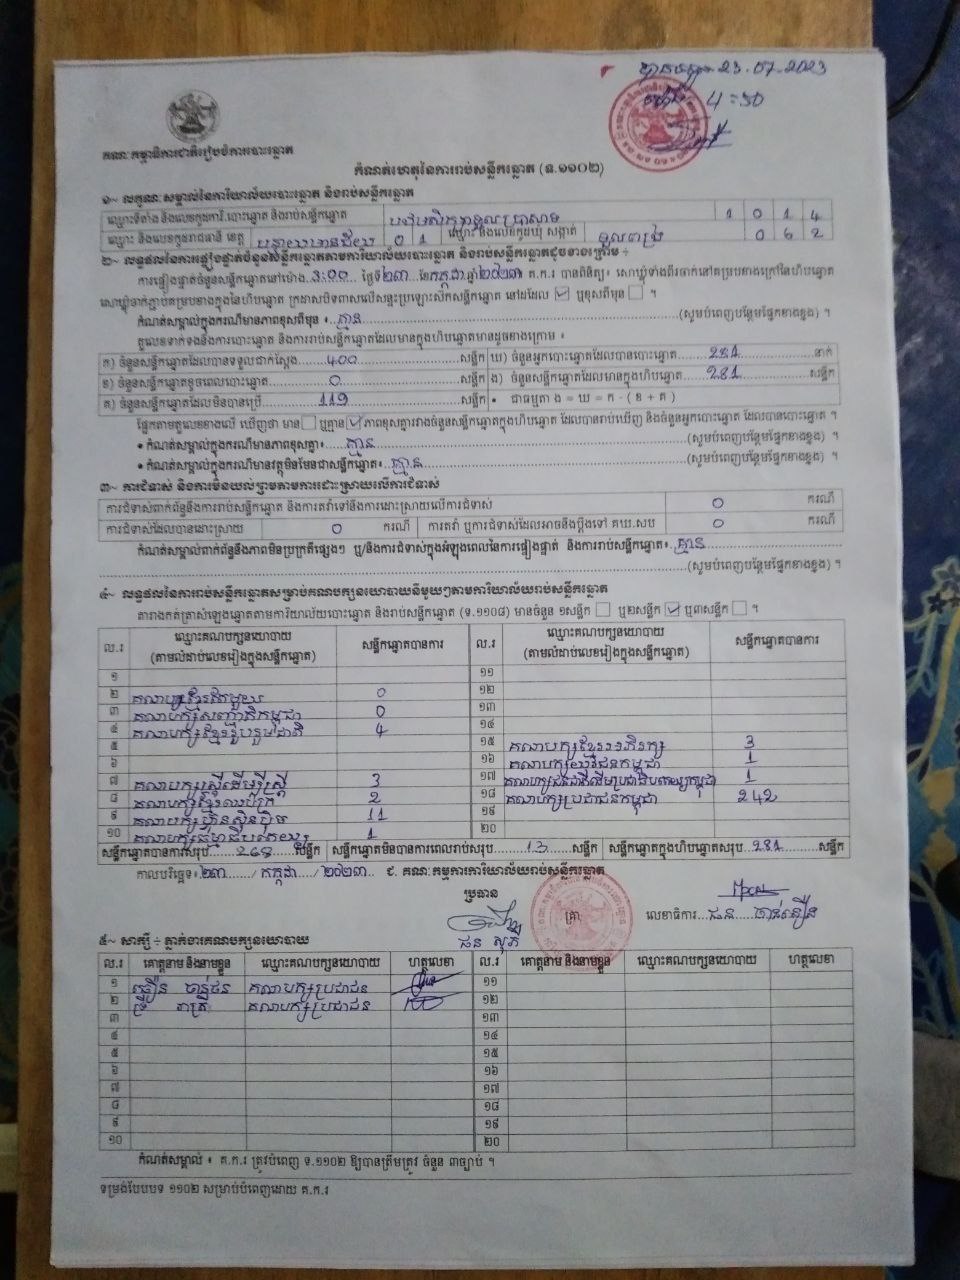 បានទទួល 23.07.2023
ម៉ោង 4:30
គណៈកម្មាធិការជាតិរៀបចំការបោះឆ្នោត
កំណត់ហេតុនៃការរាប់សន្លឹកឆ្នោត (ទ.១១០២)
១~ លក្ខណៈសម្គាល់នៃការិយាល័យបោះឆ្នោត និងរាប់សន្លឹកឆ្នោត
ឈ្មោះទីតាំង និងលេខកូដការិ.បោះឆ្នោត និងរាប់សន្លឹកឆ្នោត 1 0 1 4
ឈ្មោះ និងលេខកូដរាជធានី ខេត្ត បន្ទាយមានជ័យ 0 1 ឈ្មោះ និងលេខកូដឃុំ សង្កាត់ ទួលពង្រ 0 6 2
២~ លទ្ធផលនៃការផ្ទៀងផ្ទាត់ចំនួនសន្លឹកឆ្នោតតាមការិយាល័យបោះឆ្នោត និងរាប់សន្លឹកឆ្នោតដូចខាងក្រោម ៖
ការផ្ទៀងផ្ទាត់ចំនួនសន្លឹកឆ្នោតនៅម៉ោង 3:00 ថ្ងៃទី២៣ ខែកក្កដា ឆ្នាំ២០២៣ គ.ក.រ បានពិនិត្យ ៖ សោឃ្លុំទាំងពីរចាក់នៅគម្របខាងក្រៅនៃហិបឆ្នោត
សោឃ្លុំចាក់ភ្ជាប់គម្របខាងក្នុងនៃហិបឆ្នោត ក្រដាសបិទពាសលើសន្ទះប្រឡោះសឹកសន្លឹកឆ្នោត នៅដដែល ☑ ឬខុសពីមុន ☐ ។
កំណត់សម្គាល់ក្នុងករណីមានភាពខុសពីមុន ៖ គ្មាន (សូមបំពេញបន្ថែមផ្នែកខាងខ្នង) ។
តួលេខទាក់ទងនឹងការបោះឆ្នោត និងការរាប់សន្លឹកឆ្នោតដែលមានក្នុងហិបឆ្នោតមានដូចខាងក្រោម ៖
ក) ចំនួនសន្លឹកឆ្នោតដែលបានទទួលជាក់ស្តែង 400 សន្លឹក ឃ) ចំនួនអ្នកបោះឆ្នោតដែលបានបោះឆ្នោត 281 នាក់
ខ) ចំនួនសន្លឹកឆ្នោតខូចពេលបោះឆ្នោត 0 សន្លឹក ង) ចំនួនសន្លឹកឆ្នោតដែលមានក្នុងហិបឆ្នោត 281 សន្លឹក
គ) ចំនួនសន្លឹកឆ្នោតដែលមិនបានប្រើ 119 សន្លឹក • ជាធម្មតា ង = ឃ = ក - ( ខ + គ )
ផ្អែកតាមតួលេខខាងលើ ឃើញថា មាន ☐ ឬគ្មាន ☑ ភាពខុសគ្នារវាងចំនួនសន្លឹកឆ្នោតក្នុងហិបឆ្នោត ដែលបានរាប់ឃើញ និងចំនួនអ្នកបោះឆ្នោត ដែលបានបោះឆ្នោត ។
• កំណត់សម្គាល់ក្នុងករណីមានភាពខុសគ្នា៖ គ្មាន (សូមបំពេញបន្ថែមផ្នែកខាងខ្នង) ។
• កំណត់សម្គាល់ក្នុងករណីមានវត្ថុមិនមែនជាសន្លឹកឆ្នោត៖ គ្មាន (សូមបំពេញបន្ថែមផ្នែកខាងខ្នង) ។
៣~ ការជំទាស់ និងការមិនយល់ព្រមតាមការដោះស្រាយលើការជំទាស់
ការជំទាស់ពាក់ព័ន្ធនឹងការរាប់សន្លឹកឆ្នោត និងការតវ៉ាទៅនឹងការដោះស្រាយលើការជំទាស់ 0 ករណី
ការជំទាស់ដែលបានដោះស្រាយ 0 ករណី ការតវ៉ា ឬការជំទាស់ដែលអាចនឹងប្តឹងទៅ គឃ.សប 0 ករណី
កំណត់សម្គាល់ពាក់ព័ន្ធនឹងភាពមិនប្រក្រតីផ្សេងៗ ឬ/និងការជំទាស់ក្នុងអំឡុងពេលនៃការផ្ទៀងផ្ទាត់ និងការរាប់សន្លឹកឆ្នោត៖ គ្មាន
(សូមបំពេញបន្ថែមផ្នែកខាងខ្នង) ។
៤~ លទ្ធផលនៃការរាប់សន្លឹកឆ្នោតសម្រាប់គណបក្សនយោបាយនីមួយៗតាមការិយាល័យរាប់សន្លឹកឆ្នោត
តារាងកត់ត្រាសំឡេងឆ្នោតតាមការិយាល័យបោះឆ្នោត និងរាប់សន្លឹកឆ្នោត (ទ.១១០៨) មានចំនួន ១សន្លឹក ☐ ឬ២សន្លឹក ☑ ឬ៣សន្លឹក ☐ ។
ល.រ ឈ្មោះគណបក្សនយោបាយ (តាមលំដាប់លេខរៀងក្នុងសន្លឹកឆ្នោត) សន្លឹកឆ្នោតបានការ ល.រ ឈ្មោះគណបក្សនយោបាយ (តាមលំដាប់លេខរៀងក្នុងសន្លឹកឆ្នោត) សន្លឹកឆ្នោតបានការ
១ ១១
២ គណបក្សខ្មែរតែមួយ 0 ១២
៣ គណបក្សសញ្ជាតិកម្ពុជា 0 ១៣
៤ គណបក្សខ្មែររួបរួមជាតិ 4 ១៤
៥ ១៥ គណបក្សខ្មែរអភិរក្ស 3
៦ ១៦ គណបក្សយុវជនកម្ពុជា 1
៧ គណបក្សស្ត្រីដើម្បីស្ត្រី 3 ១៧ គណបក្សជនជាតិដើមប្រជាធិបតេយ្យកម្ពុជា 1
៨ គណបក្សខ្មែរឈប់ក្រ 2 ១៨ គណបក្សប្រជាជនកម្ពុជា 242
៩ គណបក្សហ្វ៊ុនស៊ិនប៉ិច 11 ១៩
១០ គណបក្សធម្មាធិបតេយ្យ 1 ២០
សន្លឹកឆ្នោតបានការសរុប 268 សន្លឹក សន្លឹកឆ្នោតមិនបានការពេលរាប់សរុប 13 សន្លឹក សន្លឹកឆ្នោតក្នុងហិបឆ្នោតសរុប 281 សន្លឹក
កាលបរិច្ឆេទ៖ ២៣ / កក្កដា / ២០២៣ ជ. គណៈកម្មការការិយាល័យរាប់សន្លឹកឆ្នោត
ប្រធាន
ត្រា លេខាធិការ
ផន សុភី
៥~ សាក្សី ÷ ភ្នាក់ងារគណបក្សនយោបាយ
ល.រ គោត្តនាម និងនាមខ្លួន ឈ្មោះគណបក្សនយោបាយ ហត្ថលេខា ល.រ គោត្តនាម និងនាមខ្លួន ឈ្មោះគណបក្សនយោបាយ ហត្ថលេខា
១ គណបក្សប្រជាជន ១១
២ គណបក្សប្រជាជន ១២
៣ ១៣
៤ ១៤
៥ ១៥
៦ ១៦
៧ ១៧
៨ ១៨
៩ ១៩
១០ ២០
កំណត់សម្គាល់ ៖ គ.ក.រ ត្រូវបំពេញ ទ.១១០២ ឱ្យបានត្រឹមត្រូវ ចំនួន ៣ច្បាប់ ។
ទម្រង់បែបបទ ១១០២ សម្រាប់បំពេញដោយ គ.ក.រ